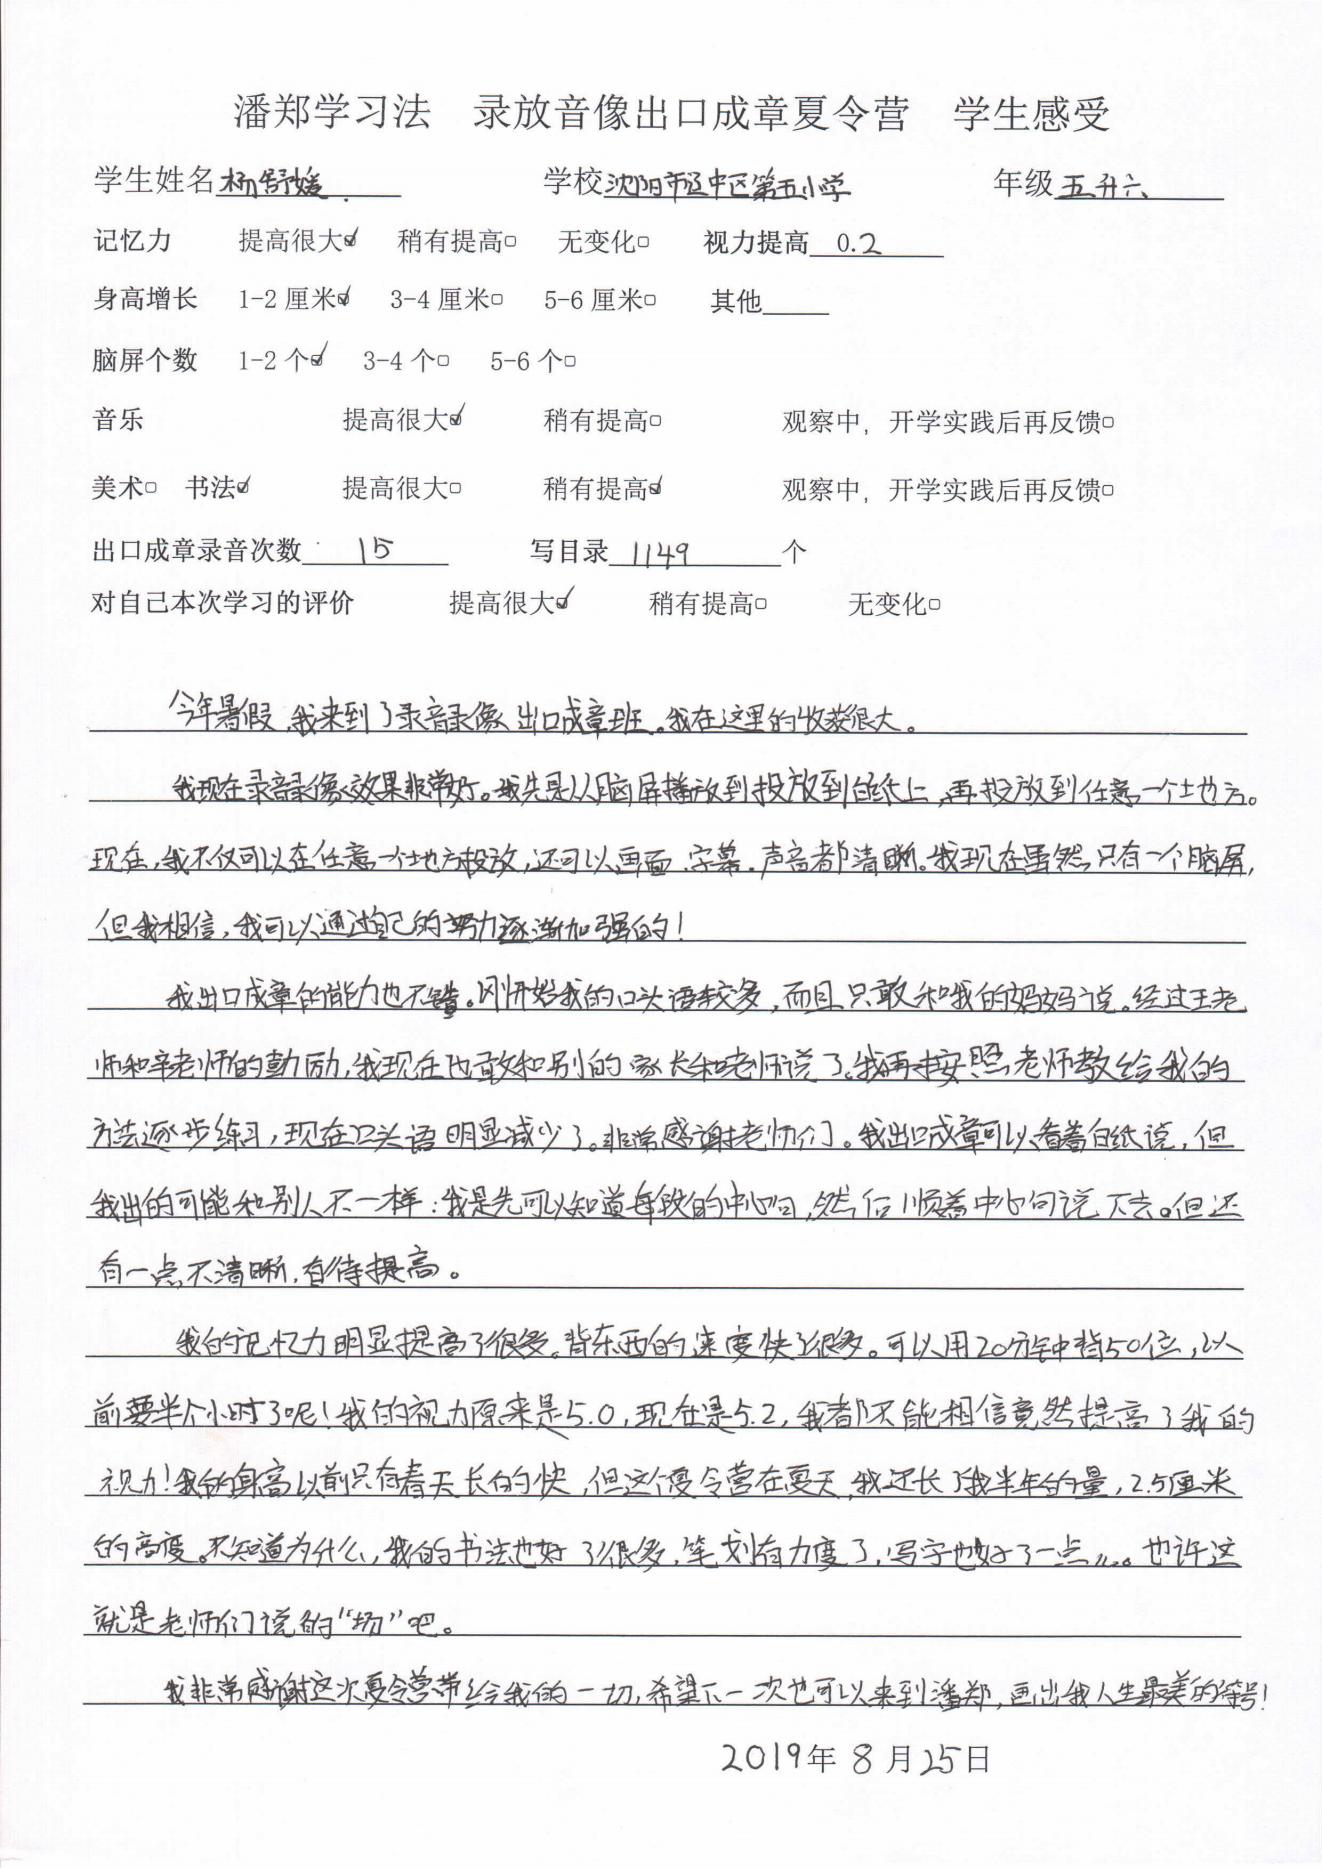 潘郑学习法 录放音像出口成章夏令营 学生感受
学生姓名 杨舒媛 学校 沈阳市辽中区第五小学 年级 五升六
记忆力 提高很大☑ 稍有提高□ 无变化□ 视力提高 0.2
身高增长 1-2 厘米☑ 3-4 厘米□ 5-6 厘米□ 其他
脑屏个数 1-2 个☑ 3-4 个□ 5-6 个□
音乐 提高很大☑ 稍有提高□ 观察中，开学实践后再反馈□
美术□ 书法☑ 提高很大□ 稍有提高☑ 观察中，开学实践后再反馈□
出口成章录音次数 15 写目录 1149 个
对自己本次学习的评价 提高很大☑ 稍有提高□ 无变化□
今年暑假,我来到了录音录像出口成章班。我在这里的收获很大。
我现在录音录像效果非常好。我先是从脑屏播放到投放到白纸上,再投放到任意一个地方。
现在,我不仅可以在任意一个地方投放,还可以画面、字幕、声音都清晰。我现在虽然只有一个脑屏,
但我相信,我可以通过自己的努力逐渐加强的!
我出口成章的能力也不错。刚开始我的口头语较多,而且只敢和我的妈妈说。经过王老
师和辛老师的鼓励,我现在也敢和别的家长和老师说了。我再按照老师教给我的
方法逐步练习,现在口头语明显减少了。非常感谢老师们。我出口成章可以看着白纸说,但
我出的可能和别人不一样:我是先可以知道每段的中心句,然后顺着中心句说下去。但还
有一点不清晰,有待提高。
我的记忆力明显提高了很多。背东西的速度快了很多。可以用20分钟背50位,以
前要半个小时了呢!我的视力原来是5.0,现在是5.2,我都不能相信竟然提高了我的
视力!我的身高以前只有春天长的快,但这个夏令营在夏天,我还长了我半年的量,2.5厘米
的高度。不知道为什么,我的书法也好了很多,笔划有力度了,写字也好了一点……。也许这
就是老师们说的“场”吧。
我非常感谢这次夏令营带给我的一切,希望下一次也可以来到潘郑,画出我人生最美的符号!
2019年 8 月25日